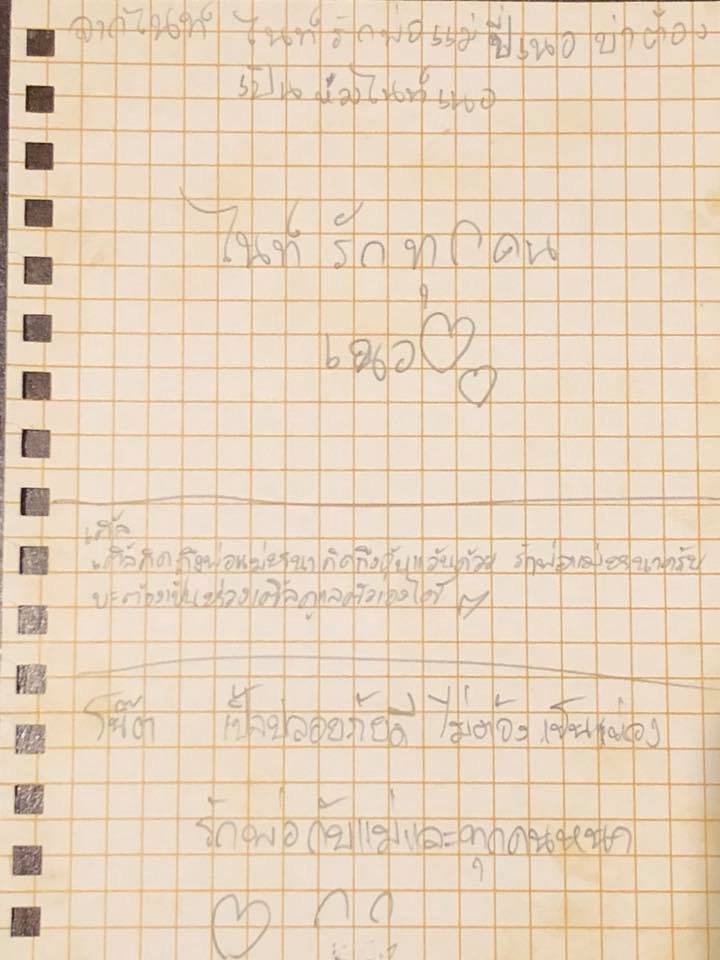 จากไนท์ ไนท์ รักพ่อแม่ ปี่เนอ บ่าต้อง
เป็น ห่วงไนท์ เนอ
ไนท์ รัก ทุกคน
เนอ
เติ้ล
เติ้ลคิดถึงพ่อแม่ คิดถึง ด้วย รักพ่อแม่
บะต้องเป็นห่วงเติ้ลดูแลตัวเองได้
โน๊ต ปลอยภัยดี ไม่ต้องเป็นห่วง
รักพ่อกับแม่และทุกคนหนา